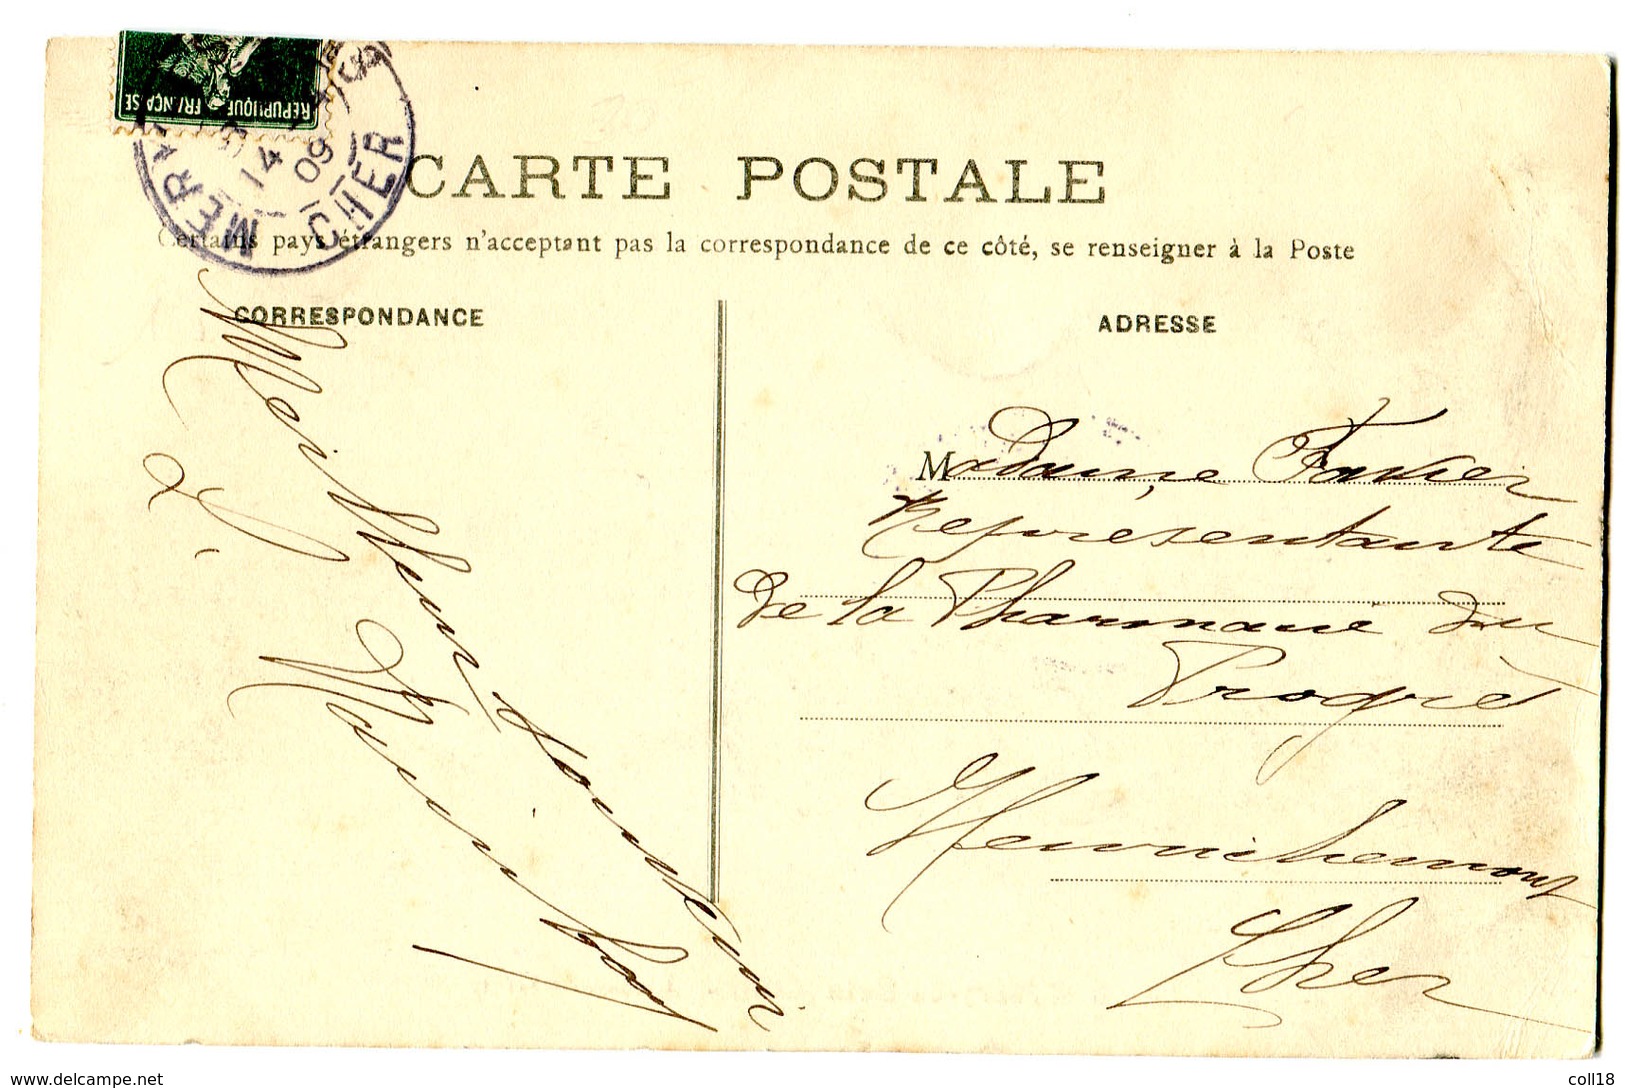 REPUBLIQUE FRANÇAISE
MERY
14
09
CHER
CARTE POSTALE
Certains pays étrangers n'acceptant pas la correspondance de ce côté, se renseigner à la Poste
CORRESPONDANCE
Meilleur Souvenir
L.
ADRESSE
Madame
Representante
De la Pharmacie du
Progrè
Henrichemont
Cher
www.delcampe.net
coll18